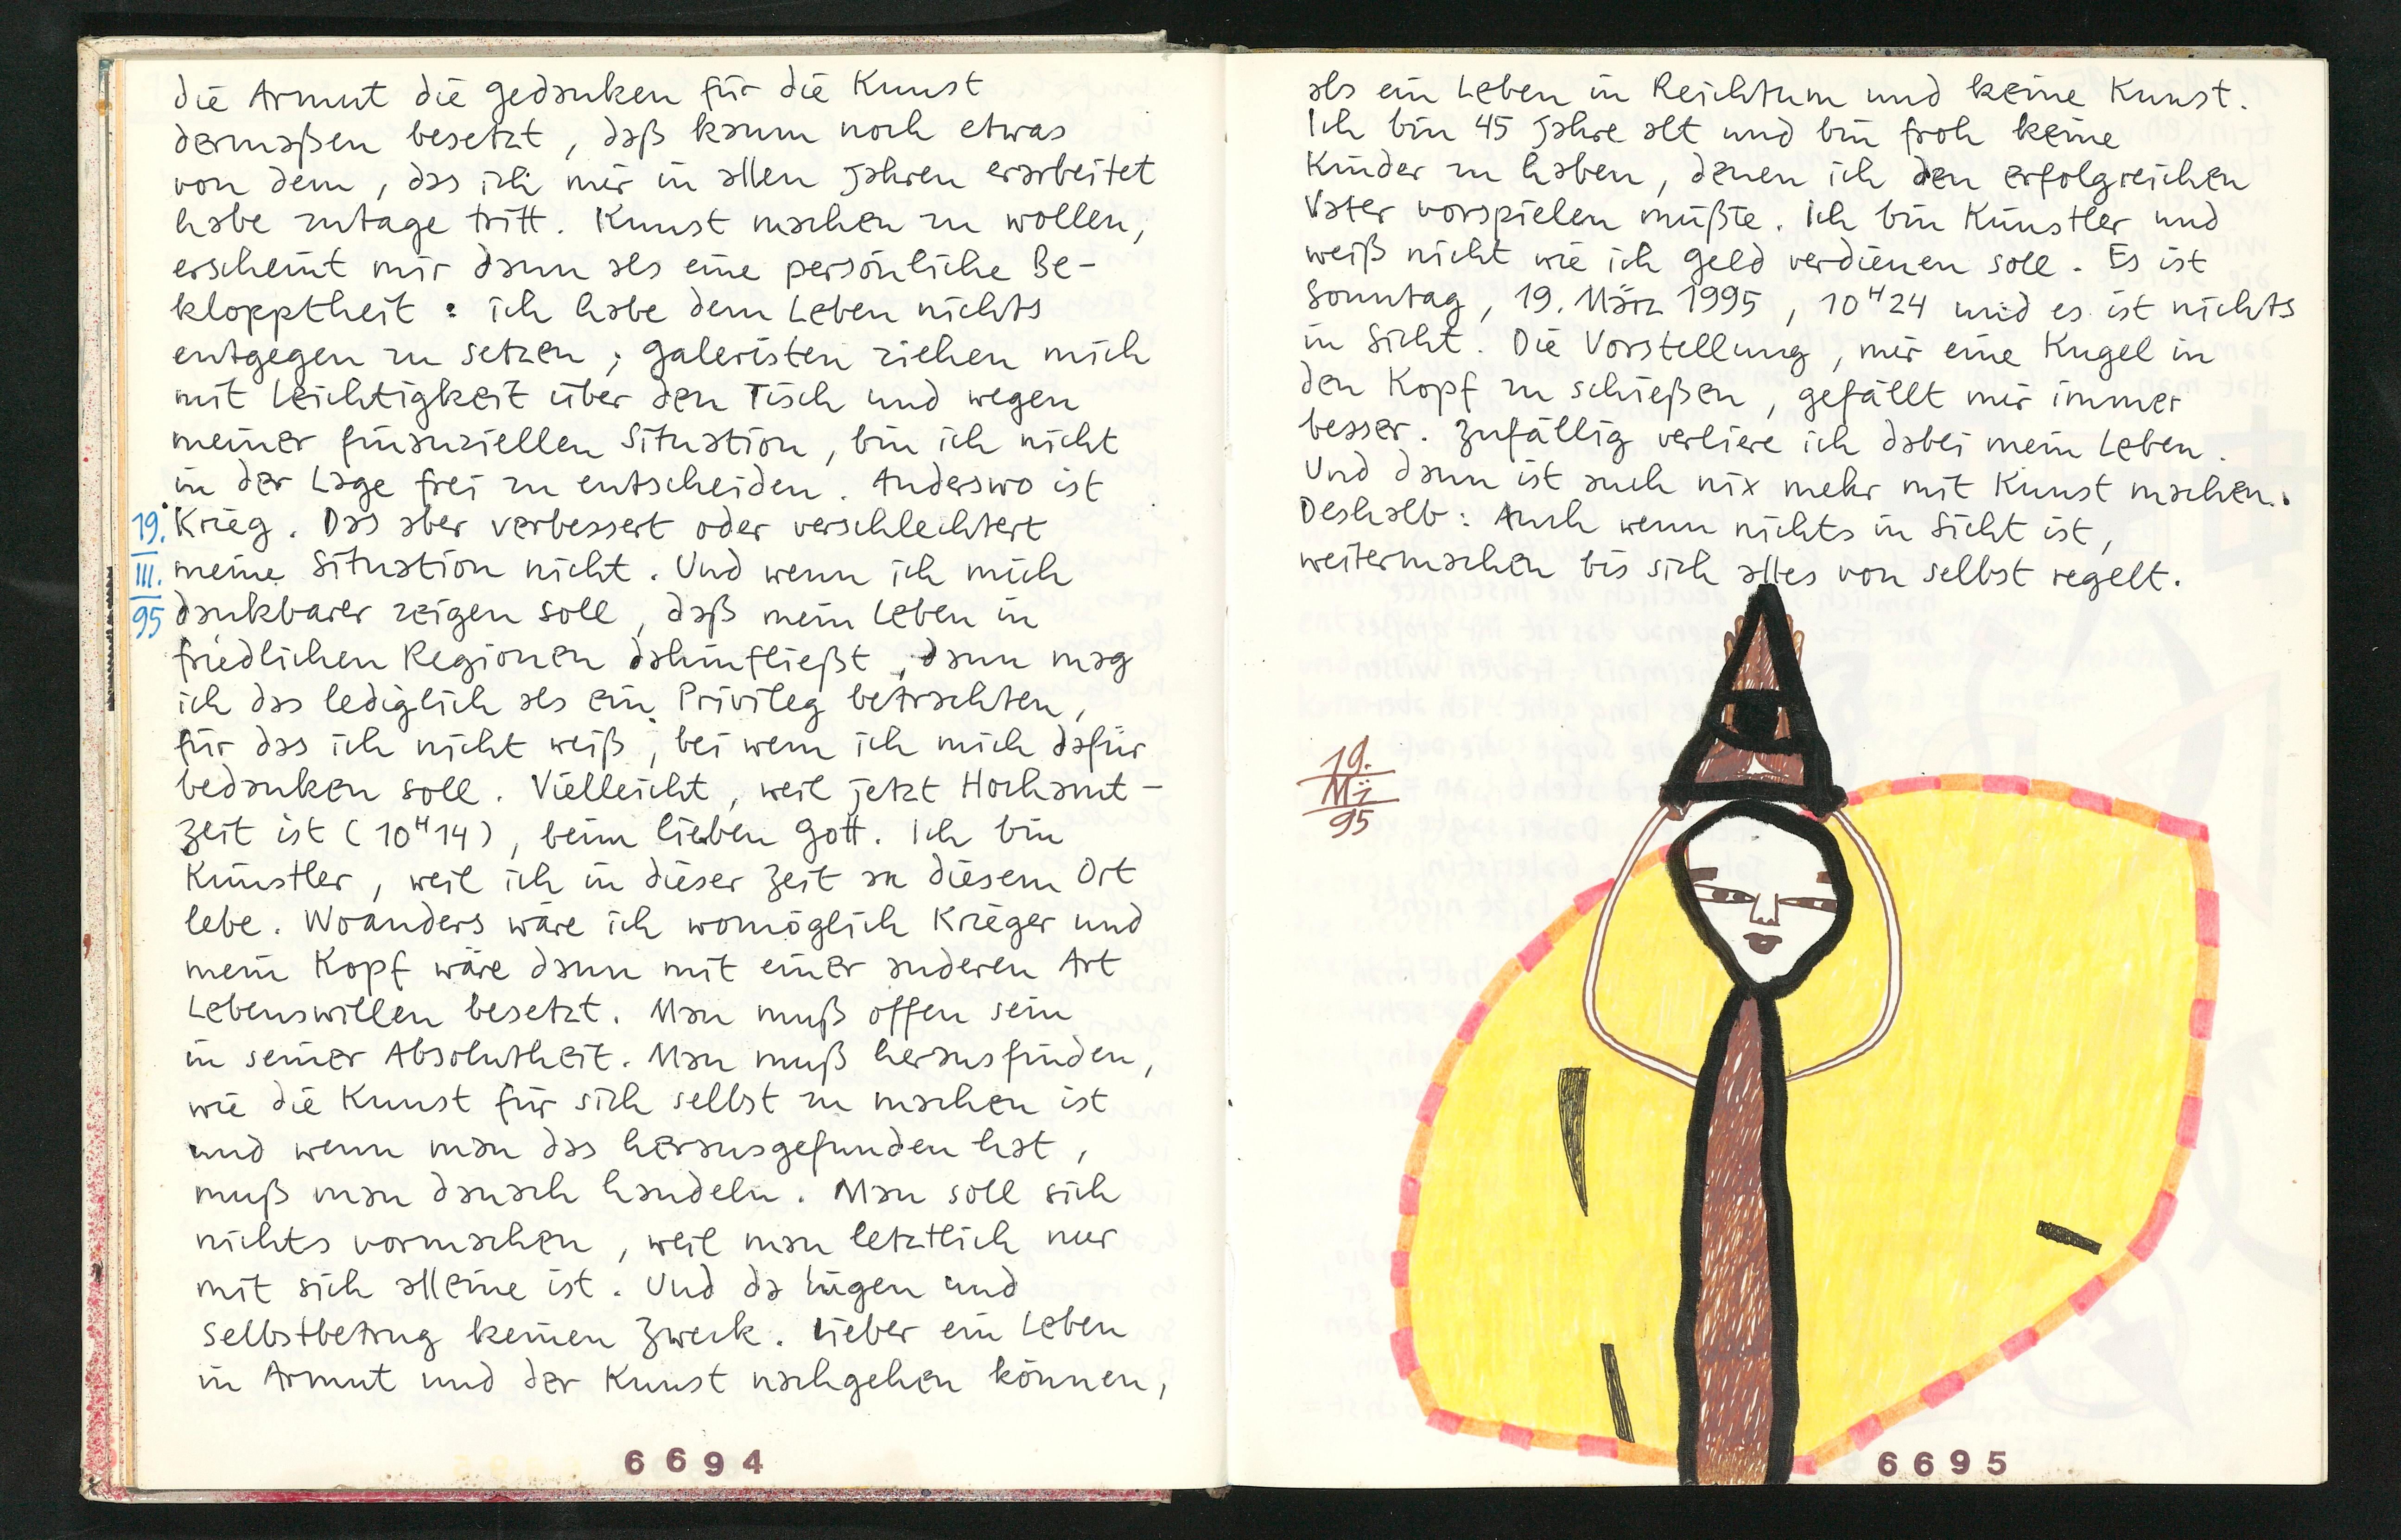 die Armut die Gedanken für die Kunst
dermaßen besetzt, daß kaum noch etwas
von dem, das ich mir in allen Jahren erarbeitet
habe zutage tritt. Kunst machen zu wollen,
erscheint mir dann als eine persönliche Be-
klopptheit: ich habe dem Leben nichts
entgegen zu setzen; Galeristen ziehen mich
mit Leichtigkeit über den Tisch und wegen
meiner finanziellen Situation, bin ich nicht
in der Lage frei zu entscheiden. Anderswo ist
Krieg. Das aber verbessert oder verschlechtert
meine Situation nicht. Und wenn ich mich
dankbarer zeigen soll, daß mein Leben in
friedlichen Regionen dahinfließt, dann mag
ich das lediglich als ein Privileg betrachten,
für das ich nicht weiß, bei wem ich mich dafür
bedanken soll. Vielleicht, weil jetzt Hochamt-
zeit ist (10H14), beim lieben Gott. Ich bin
Künstler, weil ich in dieser Zeit an diesem Ort
lebe. Woanders wäre ich womöglich Krieger und
mein Kopf wäre dann mit einer anderen Art
Lebenswillen besetzt. Man muß offen sein
in seiner Absolutheit. Man muß herausfinden,
wie die Kunst für sich selbst zu machen ist
und wenn man das herausgefunden hat,
muß man danach handeln. Man soll sich
nichts vormachen, weil man letztlich nur
mit sich alleine ist. Und da lügen und
Selbstbetrug keinen Zweck. Lieber ein Leben
in Armut und der Kunst nachgehen können,
19.
III.
95
6694
als ein Leben in Reichtum und keine Kunst.
Ich bin 45 Jahre alt und bin froh keine
Kinder zu haben, denen ich den erfolgreichen
Vater vorspielen müßte. Ich bin Künstler und
weiß nicht wie ich Geld verdienen soll. Es ist
Sonntag, 19. März 1995, 10H24 und es ist nichts
in Sicht. Die Vorstellung, mir eine Kugel in
den Kopf zu schießen, gefällt mir immer
besser. Zufällig verliere ich dabei mein Leben.
Und dann ist auch nix mehr mit Kunst machen.
Deshalb: Auch wenn nichts in Sicht ist,
weitermachen bis sich alles von selbst regelt.
19.
Mä
95
6695